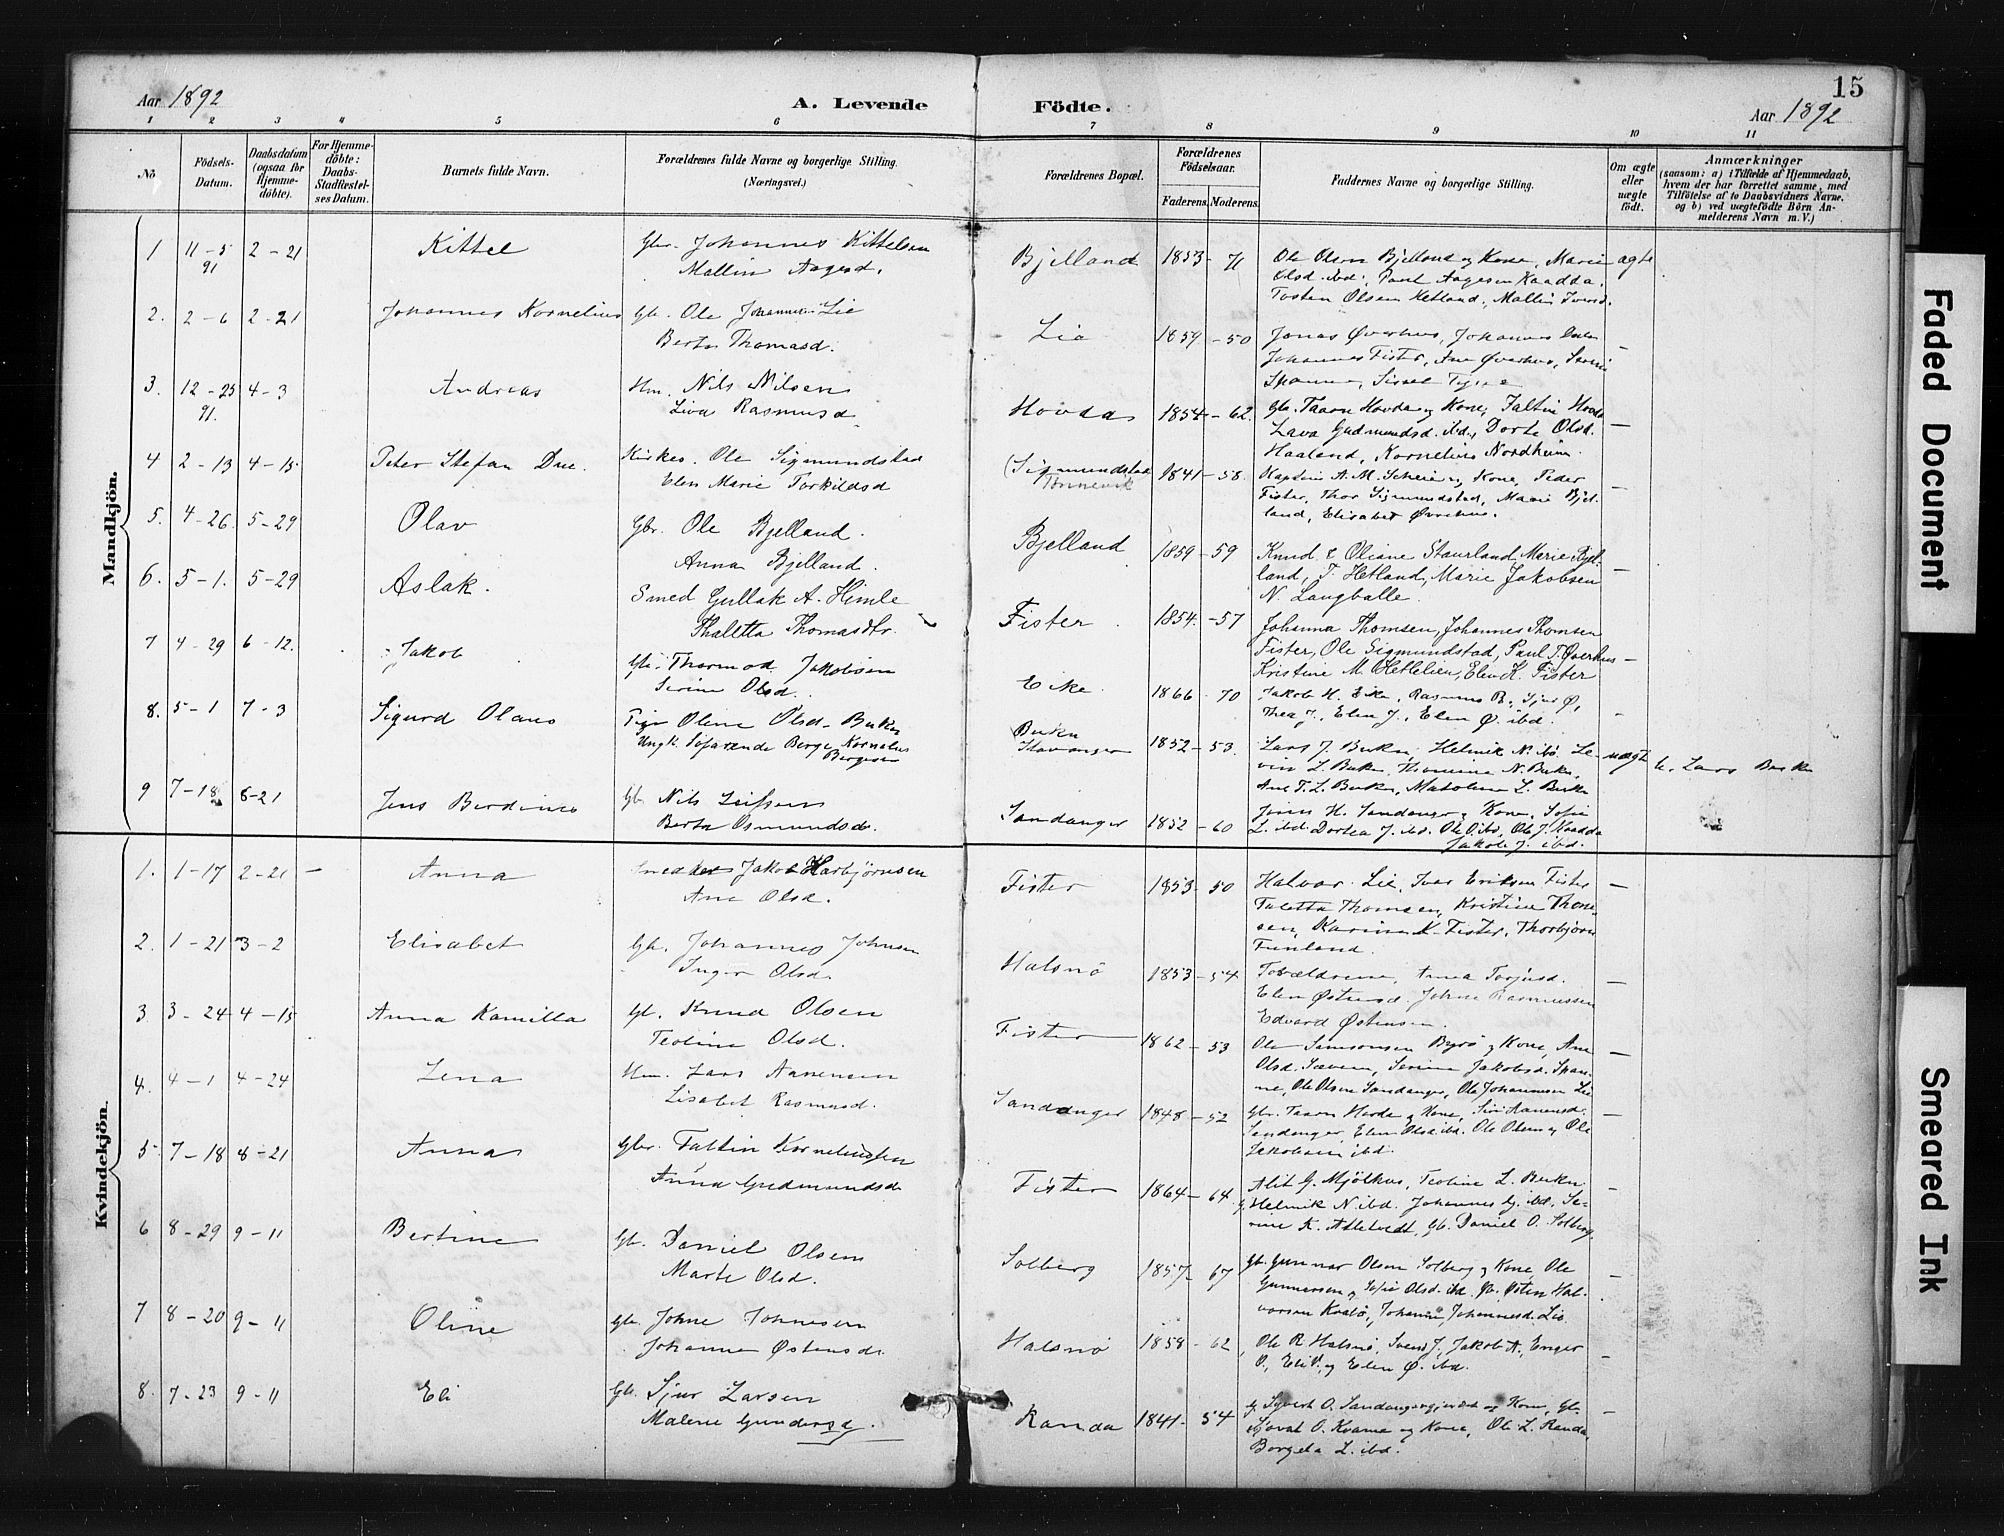 15
Aar 1892
A. Levende Födte.
Aar 1892
1 2 3 4 5 6 7 8 9 10 11
No
Födsels-Datum.
Daabsdatum (ogsaa for Hjemme-döbte).
For Hjemme-döbte: Daabs-Stadfæstel-ses Datum.
Barnets fulde Navn.
Forældrenes fulde Navne og borgerlige Stilling. (Næringsvei.)
Forældrenes Bopæl.
Forældrenes Födselsaar.
Faderens. Moderens.
Faddernes Navne og borgerlige Stilling.
Om ægte eller uægte födt.
Anmærkninger
(saasom: a) i Tilfælde af Hjemmedaab, hvem der har forrettet samme, med Tilföielse af to Daabsvidners Navne, og b) ved uægtefödte Börn Anmelderens Navn m. V.)
Mandkjön.
1 11-5 91 2-21 Kittel Gbr. Johannes Kittelsen
Mallin Aagesd. Bjelland 1853-71 Ole Olsen Bjelland og Kone, Marie ægte
Olsd. ibd. Paul Aagesen Kaadda,
Tosten Olsen Hetland, Mallin Iversd.
2. 2-6 2-21 Johannes Kornelius Gbr. Ole Johannesen Lie
Berta Thomasd. Lie 1859-50 Jonas Øverhus, Johannes
Johannes Fister, Ane Øverhus,
Sissel
3. 12-25 91. 4-3 Andreas Hm. Nils Nilsen
Liva Rasmusd. Hovda 1854-62. Gbr. Taarn Hovda og Kone, Faltin Hovda
Lava Gudmundsd. ibd, Dorte Olsd.
Haaland, Kornelius Nordheim.
4 2-13 4-15 Peter Stefan Due. Kirkes. Ole Sigmundstad
Elen Marie Torkildsd (Sigmundstad 1841-58. Kaptein A. M. Scheie og Kone, Peder
Fister, Thor Sigmundstad, Marie Bjel-
land, Elisabet Øvrehus.
5. 4-26. 5-29 Olav Gbr. Ole Bjelland.
Anna Bjelland. Bjelland 1859-59 Knud & Oliane Staurland, Marie Bjel-
land, T. Hetland, Marie Jakobsen
N. Langballe.
6. 5-1. 5-29 Aslak. Smed Gullak A. Himle
Thaletta Thomasdtr. Fister 1854.-57 Johanna Thomsen, Johannes Thomsen
Fister, Ole Sigmundstad, Paul T. Øverhus
Kristine M. Hettelien, Elen K. Fister
7 4-29 6-12. Jakob Gbr. Thormod Jakobsen
Serine Olsd. Eike. 1866-70 Jakob H. Eike, Rasmus R., Sjur Ø,
Thea J., Elen J., Elen Ø. ibd.
8. 5-1 7-3 Sigurd Olaus Pige Oline Olsd. Buken
Ungk. Søfarende Berge Kornelius
Bergesen Stavanger 1852-53. Lars J. Buken, Helmik N. ibd, Le- uægte v. Lars Buken
vin L. Buken, Thomine N. Buken,
Ane T. L. Buken, Matoline L. Buken
9 7-18 8-21 Jens Berdines Gb. Nils Leifsen
Berta Osmundsd. Sandanger 1852-60 Jonas H. Sandanger og Kone, Sofie
L. ibd. Dortea J. ibd. Ole O. ibd, Ole J. Kaadda
Jakob J. ibd.
Kvindekjön.
1. 1-17 2-21 - Anna Jakob Harbjørnsen
Ane Olsd. Fister 1853-50 Halvar Lie, Ivar Eriksen Fister
Taletta Thomsen, Kristine Thom-
sen, Karine K. Fister, Thorbjørn
Funland.
2. 1-21 3-2 Elisabet Gb. Johannes Johnsen
Inger Olsd. Halsnö 1853-54 Forældrene, Anna Torjusd.
Elen Østensd. Johne Rasmussen
Edvard Østensen.
3 3-24 4-15 Anna Kamilla Gb. Knud Olsen
Teoline Olsd. Fister 1862-53 Ole Samsonsen Byrö og Kone, Ane
Olsd. Serine Jakobsd. Span-
ne, Ole Olsen Sandanger, Ole Johannesen Lie
4. 4-1 4-24 Lena Hm. Lars Aanensen
Lisabet Rasmusd. Sandanger 1848-52 Gbr. Taarn Hovda og Kone, Siri Aanensd.
Sandanger, Elen Olsd. ibd. Ole Olsen og Ole
Jakobsen ibd.
5 7-18 8-21 Anna Gbr. Faltin Korneliussen
Anna Gudmundsd Fister 1864-64. Alit G. Mjölhus, Teoline L. Buken
Helmik N. ibd. Johannes G. ibd. Se-
rine K. Gb. Daniel O. Solberg.
6 8-29 9-11 Bertine Gb. Daniel Olsen
Marte Olsd. Solberg 1857-67 Gb. Gunnar Olsen Solberg og Kone Ole
Gunnarsen og Sofie Olsd. ibd. Gb. Østen Hal-
vorsen Kvalö, Johanne Johannesd. Lie.
7 8-20 9-11 Oline Gb. Johne Johnesen
Johanne Østensd. Halsnö 1858-62 Ole R. Halsnö, Svend J, Jakob A, Enger
O, Eli og Elen Ø. ibd.
8. 7-23 9-11 Eli Gb. Sjur Larsen
Malene Gundersd. Randa 1841-54 Syvert O. Sandangergjerdet og Kone, Gb.
Sjovat O. Kvame og Kone, Ole L. Randa,
Borgela L. ibd.
Faded Document
Smeared Ink